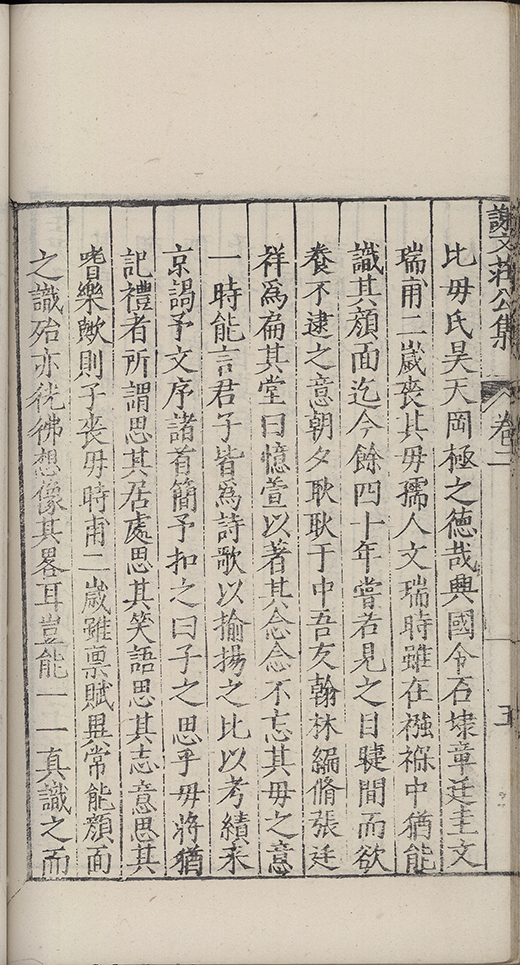 謝文莊公集
卷二
五
比毋氏昊天罔極之德哉興國令石埭章廷圭文
瑞甫二歲喪其毋孺人文瑞時雖在襁褓中猶能
識其顏面迄今餘四十年嘗若見之目睫間而欲
養不逮之意朝夕耿耿于中吾友翰林編脩張廷
祥爲扁其堂曰憶萱以著其念念不忘其毋之意
一時能言君子皆爲詩歌以揄揚之比以考績來
京謁予文序諸首簡予扣之曰子之思乎毋將猶
記禮者所謂思其居處思其笑語思其志意思其
嗜樂歟則子喪毋時甫二歲雖禀賦異常能顏面
之識殆亦彷彿想像其畧耳豈能一一真識之而